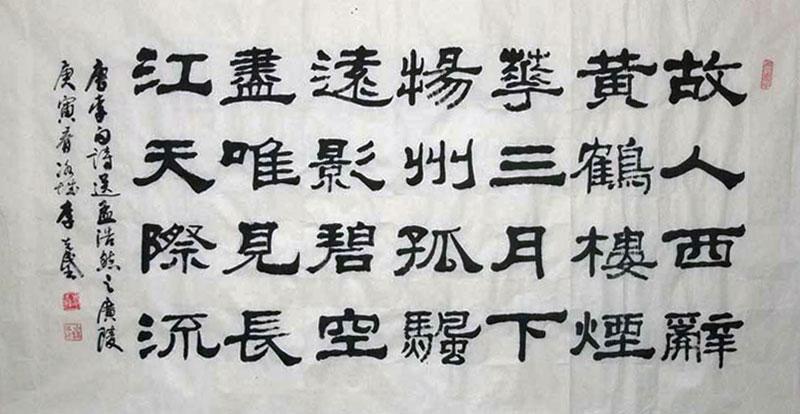 故人西辭
黃鶴樓煙
華三月下
揚州孤颿
遠影碧空
盡唯見長
江天際流
唐李白詩送孟浩然之廣陵
庚寅春洛城李